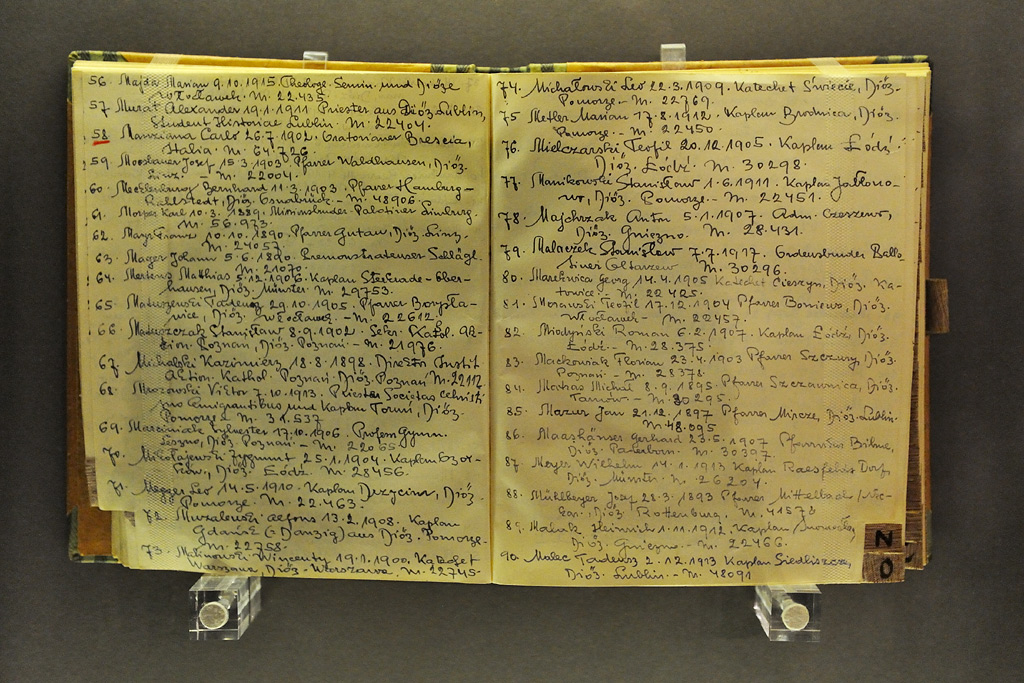 56. Majda Marian 9.10.1915. Theologe. Semin. und Diöze
Włocławek. M. 22.435.
57. Murat Alexander 19.1.1911 Priester aus Diöz. Lublin,
Student Historiae Lublin. M. 22404.
58 Manziana Carlo 26.7.1902. Oratorianer Brescia,
Italia. M. 64.726.
59. Moosbauer Josef 15.3.1903 Pfarrer Waldhausen, Diöz.
Linz. - M. 22004.
60. Mecklenburg Bernhard 11.3.1903. Pfarrer Hamburg-
Rahlstedt, Diöz. Osnabrück - M. 48906.
61. Karl 10.3.1889. Pallotiner Limburg.
M. 56.973.
62. Mayr Franz 10.10.1890. Pfarrer Gutau, Diöz. Linz.
M. 24057.
63. Mager Johann 5.6.1890. Premonstratenser Schlägl.
M. 21070.
64. Mertens Matthias 5.12.1906. Kaplan Sterkrade-Ober-
hausen, Diöz. Münster. M. 29753.
65. Matuszewski Tadeusz 29.10.1905. Pfarrer
nice, Diöz. Włocławek. - M. 22612.
66. Mateuszczak Stanisław 8.9.1902. Sekr. Kathol. Ak-
tion. Poznań, Diöz. Poznań - M. 21976.
67. Michalski Kazimierz 18.8.1898. Direkto Instit
Action. Kathol. Poznań. Diöz. Poznań M. 22117
68. Mrozowski Viktor 7.10.1913. Priester Societas Christi
pro Emigrantibus und Kaplan Toruń, Diöz.
Pomorze M. 31.537
69. Marciniak Sylvester 17.10.1906. Profess Gymn.
Leszno, Diöz. Poznań - M. 22065.
70. Mikołajewski Zygmunt 25.1.1904. Kaplan Ozor-
ków, Diöz. Łódź. M. 28456.
71. Megger Leo 14.5.1910. Kaplan Drzycim, Diöz.
Pomorze. M. 22.463.
72. Muzalewski Alfons 13.2.1908. Kaplan
Gdańsk (=Danzig) aus Diöz. Pomorze.
M. 22758.
73. Malinowski Wincenty 19.1.1900, Katechet
Warszawa, Diöz. Warszawa, M. 22745.
74. Michałowski Leo 22.3.1909. Katechet Świecie, Diöz.
Pomorze. - M. 22769.
75 Metler Marian 17.8.1912. Kaplan Brodnica, Diöz.
Pomorze. - M. 22450.
76. Mielczarski Teofil 20.12.1905. Kaplan Łódź
Diöz. Łódź. M. 30298.
77. Manikowski Stanisław 1.6.1911. Kaplan Jabłono-
wo, Diöz. Pomorze. - M. 22451.
78. Majchrzak Anton 5.1.1907. Adm. Czeszewo,
Diöz. Gniezno. M. 28.431.
79. Malaczek Stanisław 7.7.1917. Ordensbruder Pallo
tiner Ołtarzew M. 30296.
80. Marekwica Georg 14.4.1905 Katechet Cieszyn, Diöz. Ka-
towice. - M. 22425.
81. Morawski Teofil 17.12.1904 Pfarrer Boniewo, Diöz.
Włocławek - M. 22457.
82. Miodyński Roman 6.2.1907. Kaplan Łódź, Diöz.
Łódź. - M. 28.375.
83. Maćkowiak Florian 23.4.1903 Pfarrer Szczury, Diöz.
Poznań - M. 28378.
84. Matras Michał 8.9.1895. Pfarrer Szczawnica, Diöz.
Tarnów - M. 30295.
85. Mazur Jan 21.12.1897 Pfarrer Mircze, Diöz. Lublin.
M. 48.095
86. Maashänser Gerhard 23.5.1907 Pfarrvikar
Diöz. Paderborn. M. 30397.
87. Meyer Wilhelm 14.1.1913 Kaplan Raesfeld Dorf,
Diöz. Münster M. 26204.
88. Mühlbeyer Josef 28.3.1893 Pfarrer Mittelbach/Nec-
kar. Diöz. Rottenburg. M. 41578
89. Malak Heinrich 1.11.1912. Kaplan/Inowrocław,
Diöz. Gniezno - M. 22466.
90. Malec Tadeusz 2.12.1913 Kaplan Siedliszcze,
Diöz. Lublin. - M. 48091
N
O